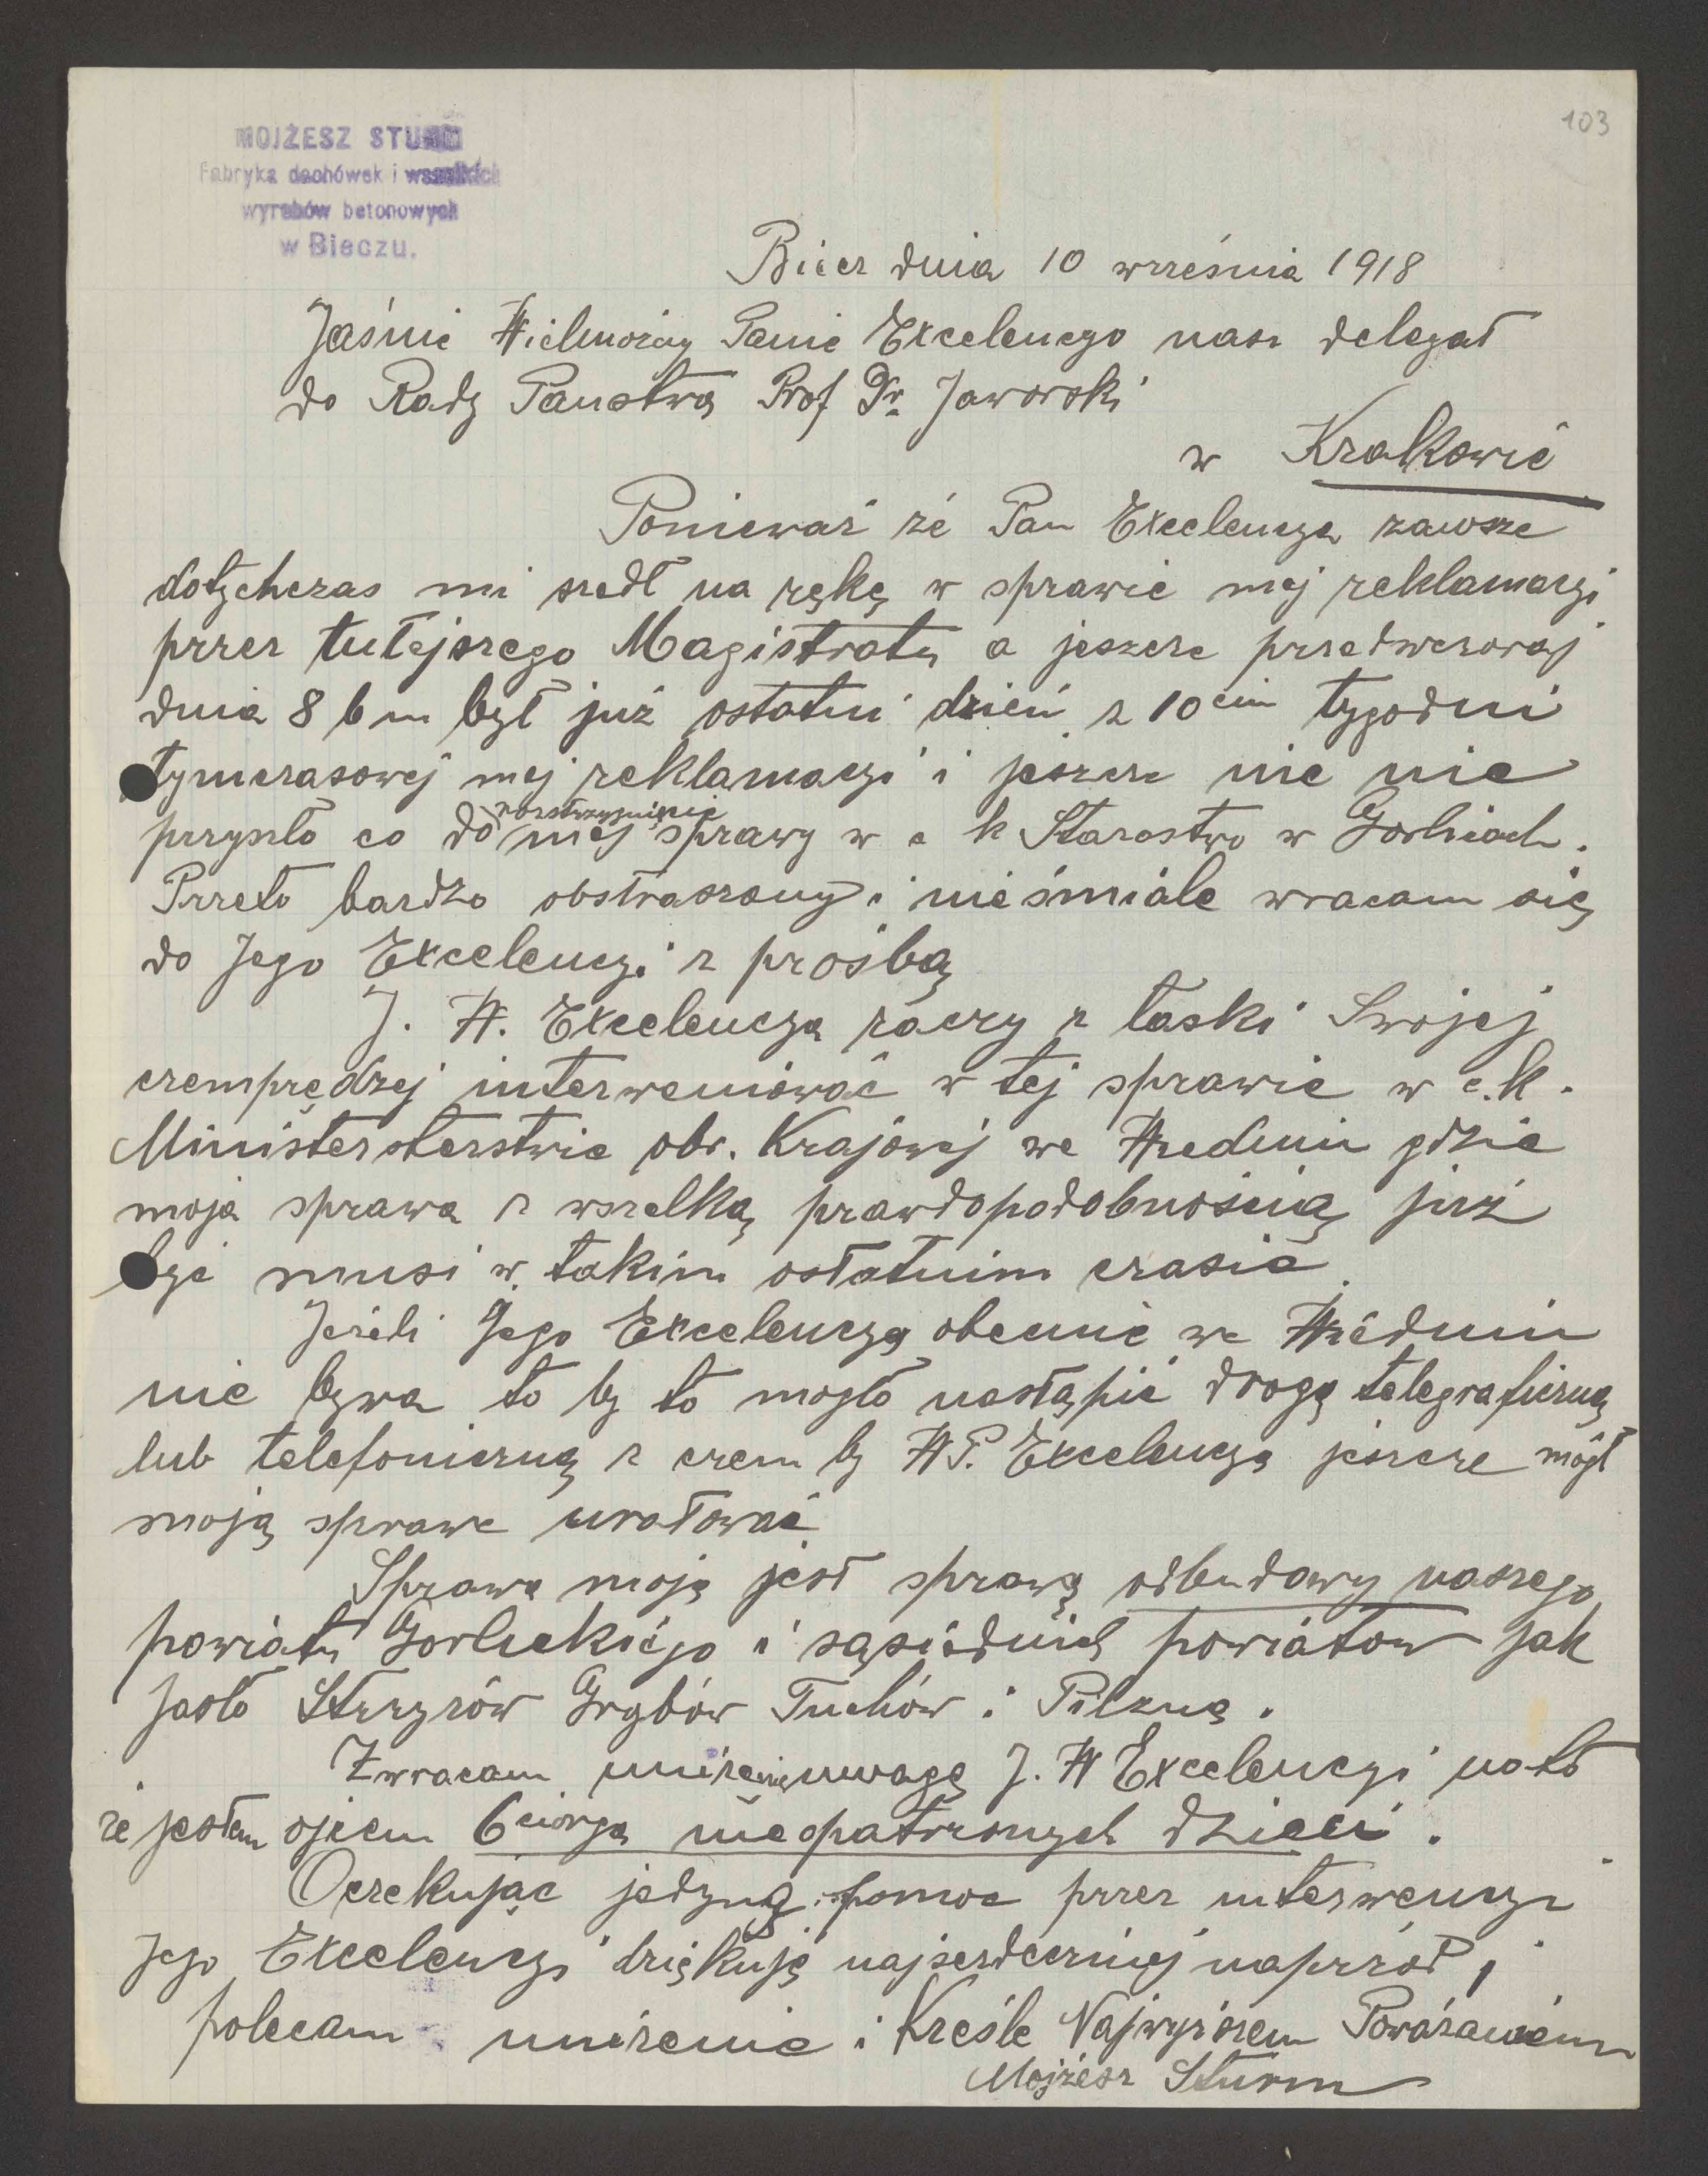 103
MOJŻESZ STURM
Fabryka dachówek i wszelkich
wyrobów betonowych
w Bieczu.
Biecz dnia 10 września 1918
Jaśnie Wielmożny Panie Excelencyo nasz delegat
do Rady Państwa Prof Dr. Jaworski
w Krakowie
Ponieważ że Pan Excelencya zawsze
dotychczas mi szedł na rękę w sprawie mej reklamacyi
przez tutejszego Magistratu a jeszcze przedwczoraj
dnia 8 b m był już ostatni dzień z 10cim tygodni
tymczasowej mej reklamacyi i jeszcze nic nie
przyszło co do rozstrzygnięcie mej sprawy w c k Starostwo w Gorlicach.
Przeto bardzo obstraszony i nieśmiale wracam się
do Jego Excelencyi z prośbą
J. W. Excelencya raczy z łaski Swojej
czemprędzej interweniować w tej sprawie w c.k.
Ministersterstwie obr. Krajowej we Wiedniu gdzie
moja sprawa z wszelką prawdopodobnością już
być musi w takim ostatnim czasie.
Jeżeli Jego Excelencya obecnie we Wiedniu
nie bywa to by to mogło nastąpić drogą telegraficzną
lub telefoniczną z czem by W P. Excelencya jeszcze mógł
moją sprawe uratować
Sprawa moja jest sprawą odbudowy naszego
powiatu Gorlickiego i sąsiednich powiatow jak
Jasło Strzyzów Grybów Tuchów i Pilzna.
Zwracam uniżenie uwagę J. W Excelencyi na to
że jestem ojcem 6ciorga nieopatrzonych dzieci.
Oczekując jedyną pomoc przez interwencyi
Jego Excelencyi dziękuję najserdeczniej naprzód i
polecam unizenie i Kreśle Najwyższem Poważaniem
Mojżesz Sturm